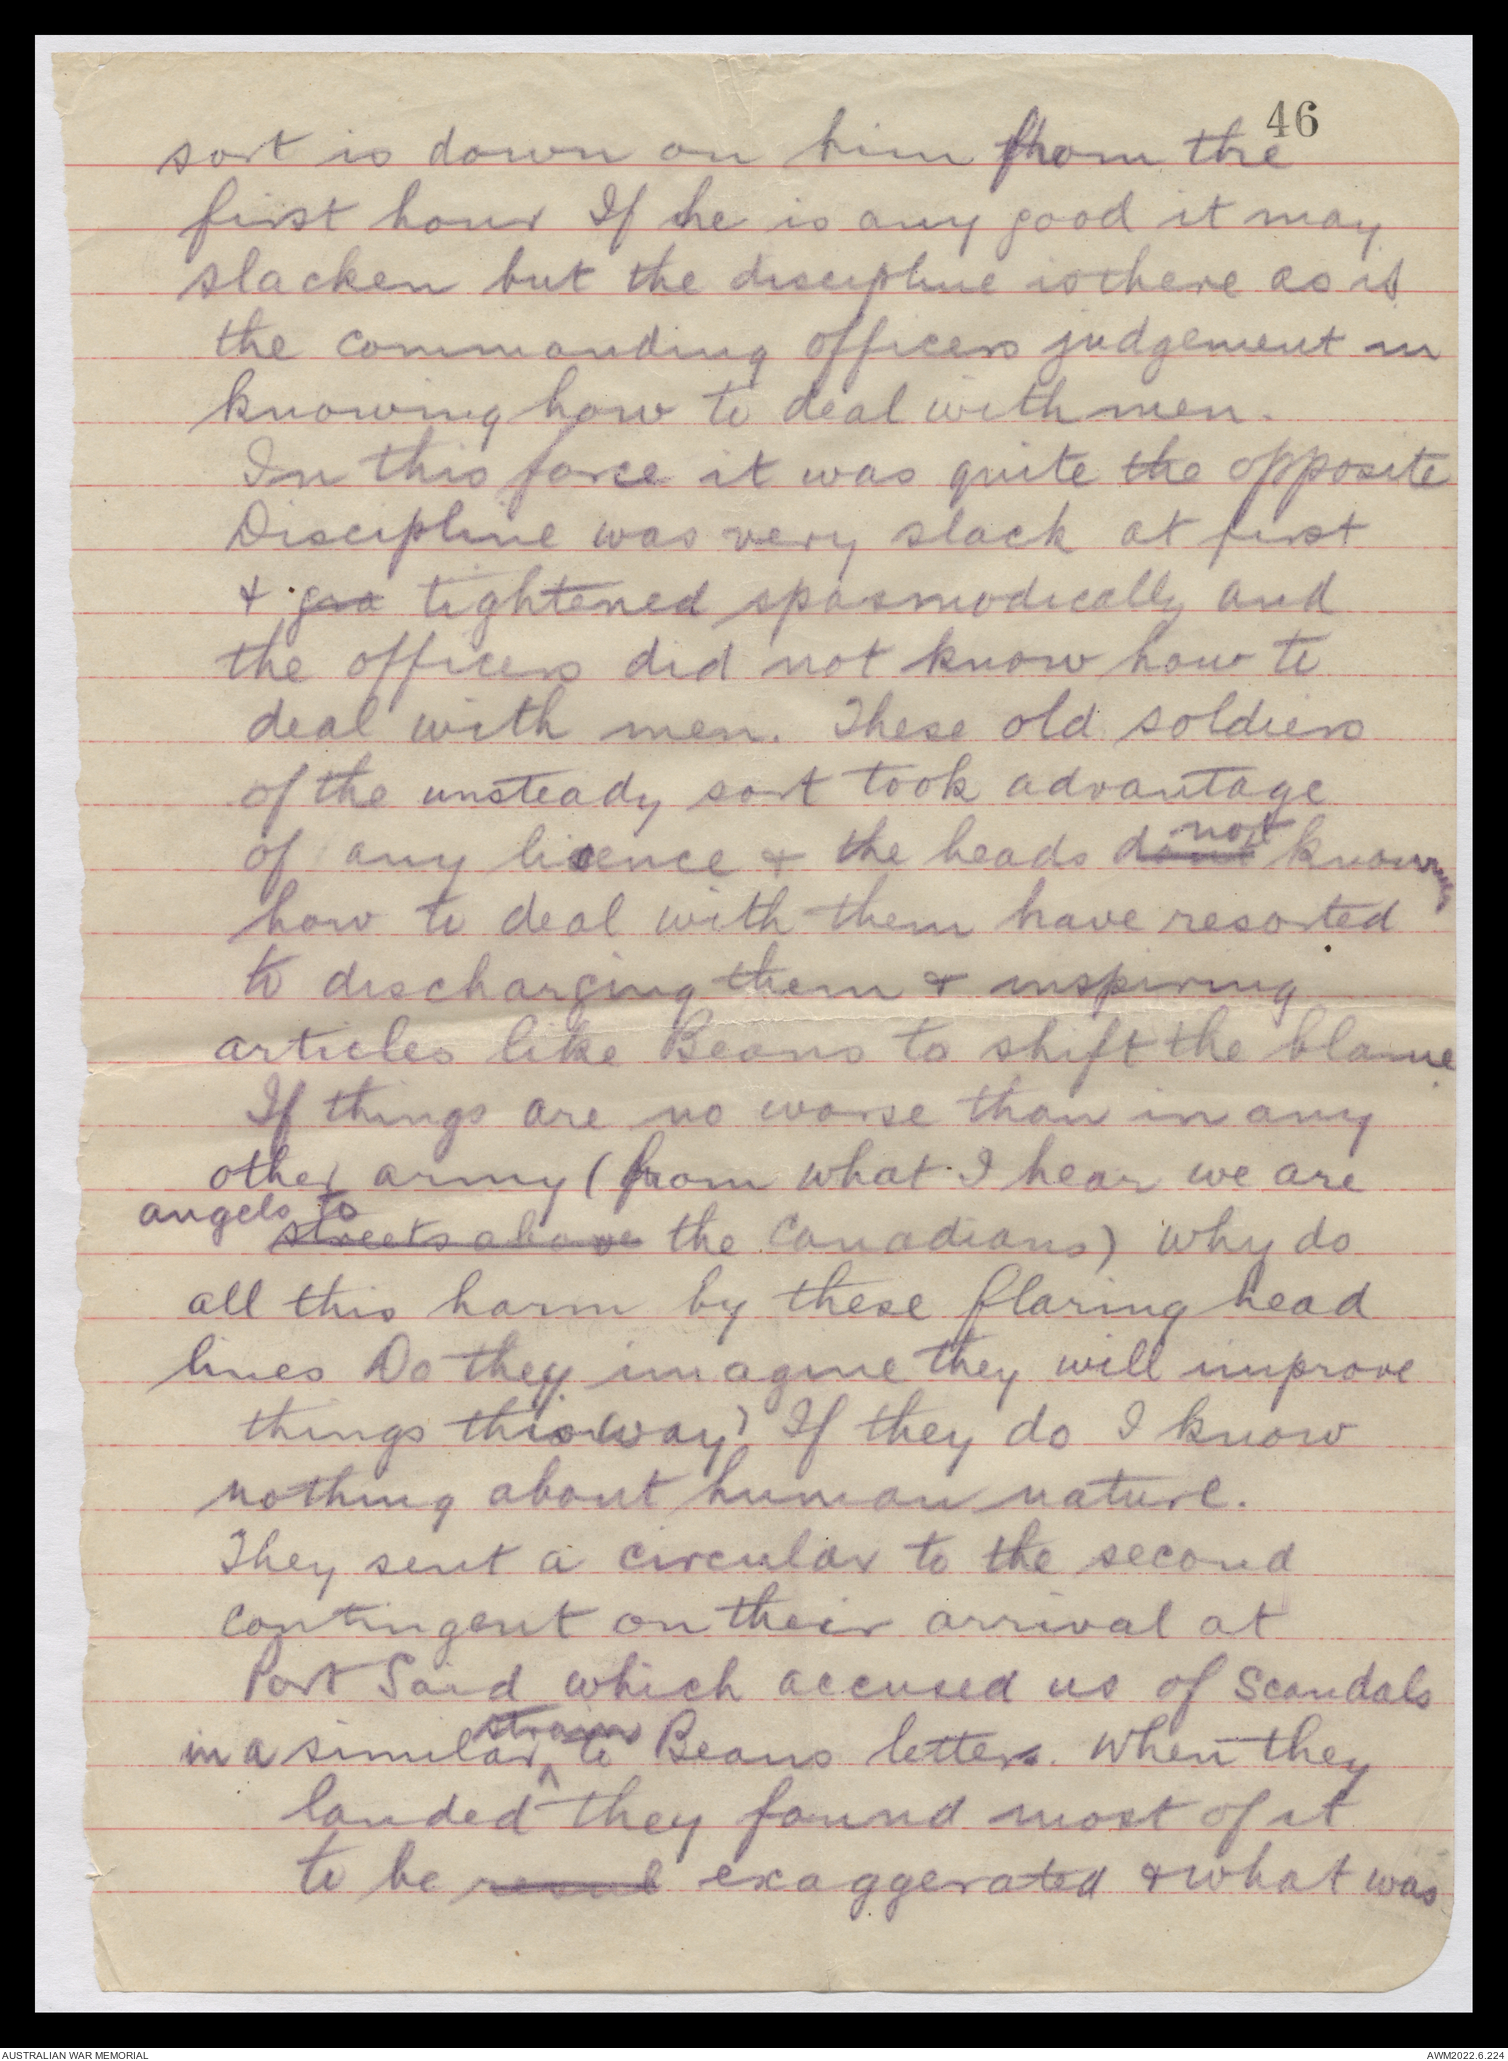 46
sort is down on him from the
first hour If he is any good it may
slacken but the discipline is there as is
the commanding officers judgement in
knowing how to deal with men.
In this force it was quite the opposite
Discipline was very slack at first
& gra tightened spasmodically and
the officers did not know how to
deal with men. These old soldiers
of the unsteady sort took advantage
of any licence & the heads dont not knowing
how to deal with them have resorted
to discharging them & inspiring
articles like Beans to shift the blame
If things are no worse than in any
other army (from what I hear we are
angels to
streets above the Canadians) why do
all this harm by these flaring head
lines Do they imagine they will improve
things this way? If they do I know
nothing about human nature.
They sent a circular to the second
contingent on their arrival at
Port Said which accused us of scandals
in a similar strain to Beans letters. When they
landed they found most of it
to be exaggerated & what was
AUSTRALIAN WAR MEMORIAL
AWM2022.6.224